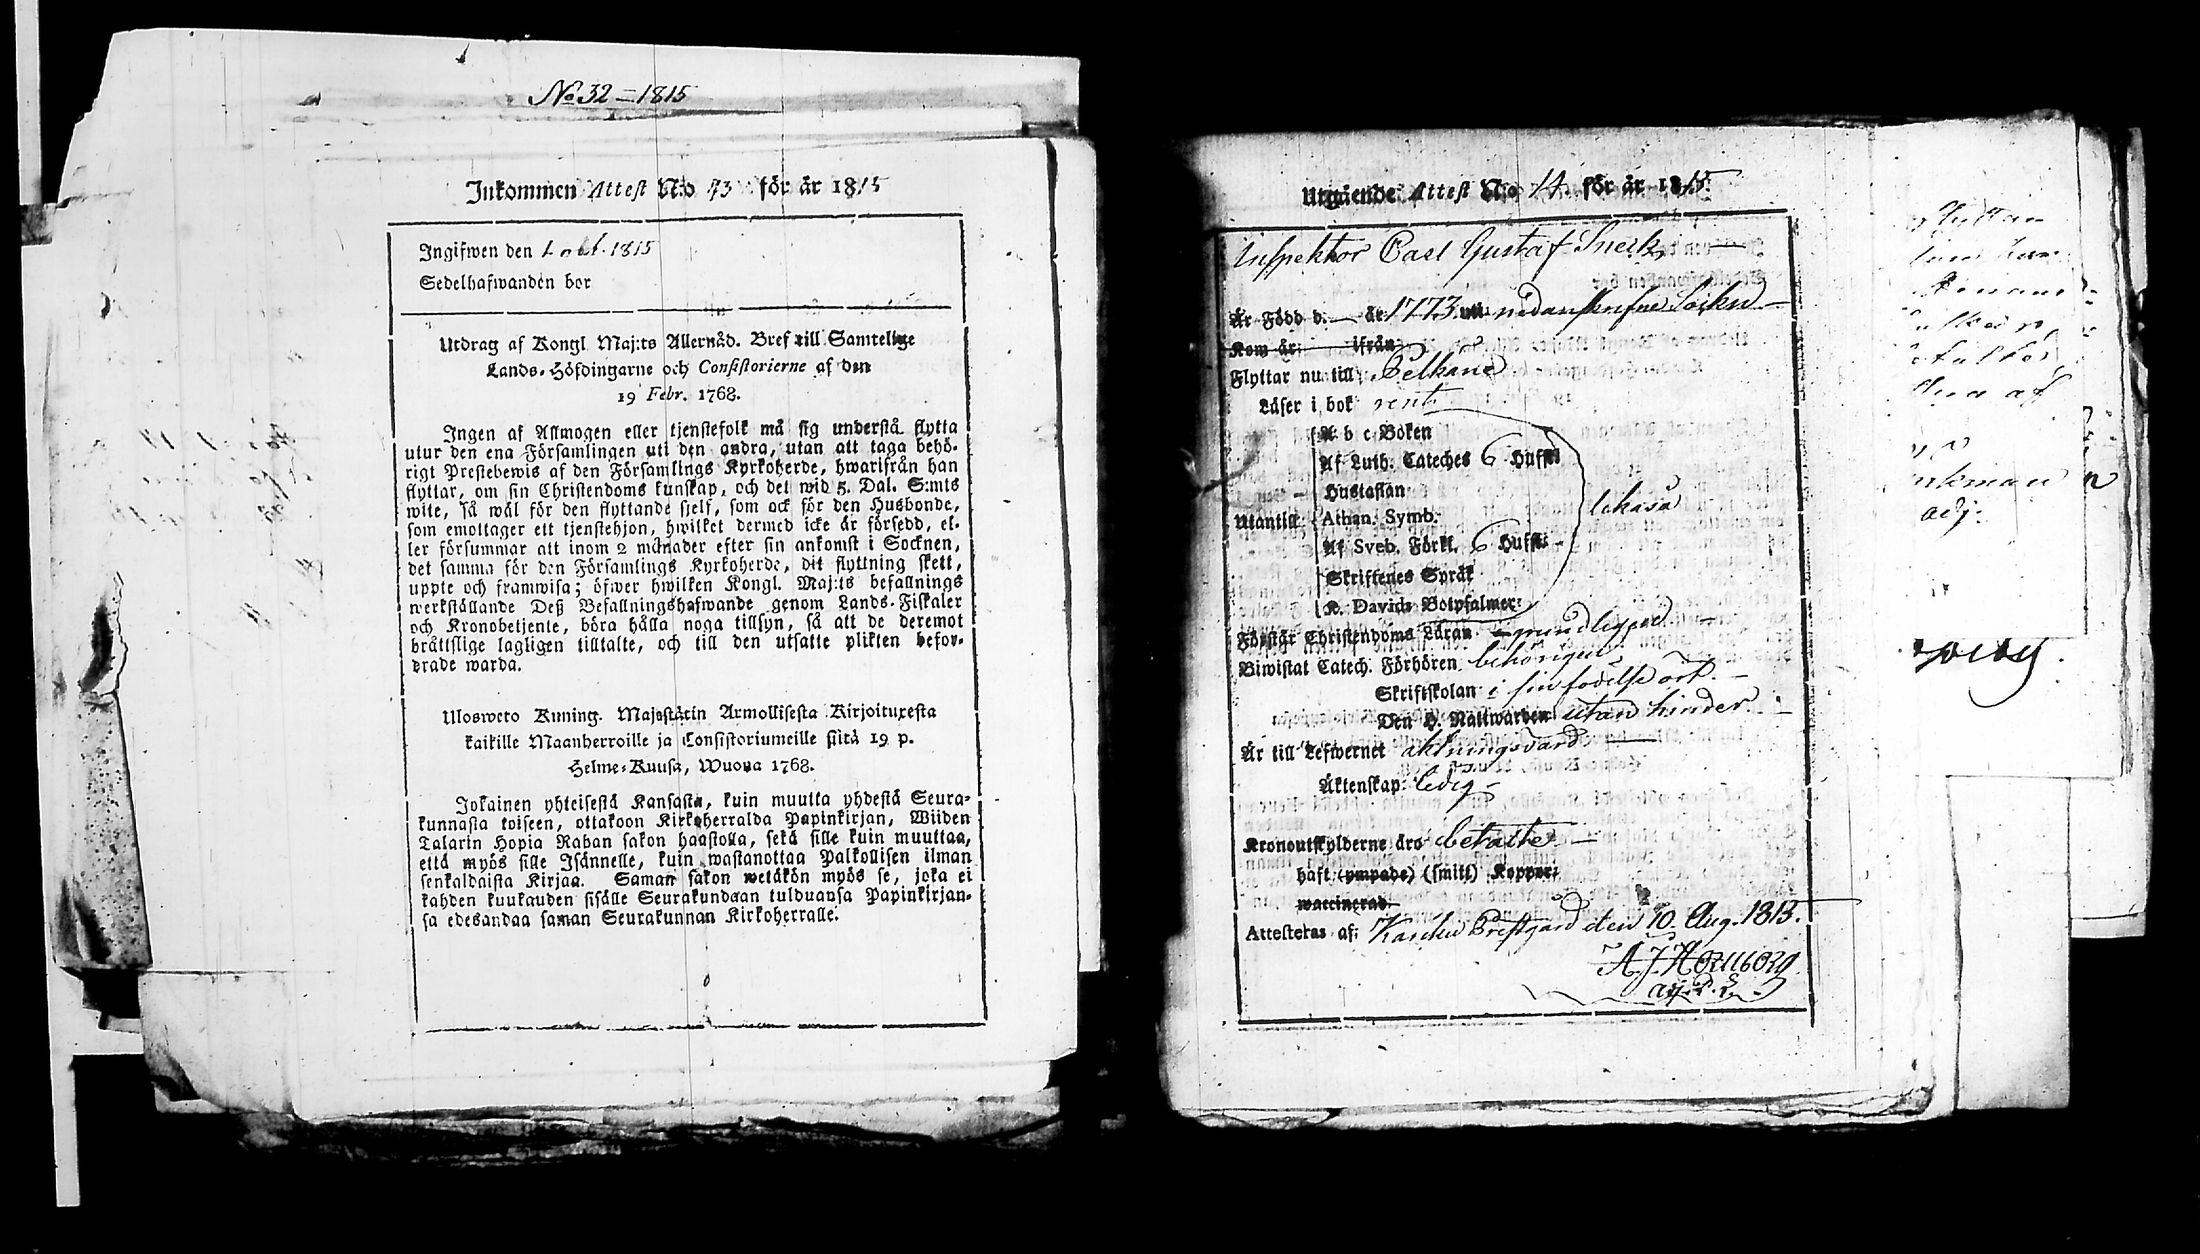 No 32 – 1815
Inkommen Attest N:o 73 för år 1815
Ingifwen den 1 oct. 1815
Sedelhafwanden bor
Utdrag af Kongl Maj:ts Allernåd. Bref till Samtelige
Lands-Höfdingarne och Consistorierne af den
19 Febr. 1768.
Ingen af Allmogen eller tjenstefolk må sig understå flytta
utur den ena Församlingen uti den andra, utan att taga behö-
rigt Prestebewis af den Församlings Kyrkoherde, hwarifrån han
flyttar, om sin Christendoms kunskap, och det wid 5. Dal. S:mts
wite, så wäl för den flyttande sjelf, som ock för den Husbonde,
som emottager ett tjenstehjon, hwilket dermed icke är försedd, el-
ler försummar att inom 2 månader efter sin ankomst i Socknen,
det samma för den Församlings Kyrkoherde, dit flyttning skett,
uppte och framwisa; öfwer hwilken Kongl. Maj:ts befallnings
werkställande Deß Befallningshafwande genom Lands-Fiskaler
och Kronobetjente, böra hålla noga tillsyn, så att de deremot
bråttslige lagligen tilltalte, och till den utsatte plikten befor-
drade warda.
Ulosweto Kuning. Majestätin Armollisesta Kirjoituxesta
kaikille Maanherroille ja Consistoriumeille siitä 19 p.
Helme-Kuusa, Wuona 1768.
Jokainen yhteisestä Kansasta, kuin muutta yhdestä Seura-
kunnasta toiseen, ottakoon Kirkoherralda Papinkirjan, Wiiden
Talarin Hopia Raban sakon haastolla, sekä sille kuin muuttaa,
että myös sille Isännelle, kuin wastanottaa Palkollisen ilman
senkaldaista Kirjaa. Saman sakon wetäkön myös se, joka ei
kahden kuukauden sisälle Seurakundaan tulduansa Papinkirjan-
sa edesandaa saman Seurakunnan Kirkoherralle.
Utgående Attest N:o 14 för år 1815.
Inspektor Carl Gustaf Sneck
Är Född d. — år 1773 uti nedanskrefne Sockn —
Kom år ifrån
Flyttar nu till Pelkäne
Läser i bok rent
A b c-Boken
Af Luth. Cateches 6 Hufst:
Hustaflan
Utantill Athan. Symb. lckasa
Af Sveb. Förkl. 6 Hufst:
Skriftenes Språk
K. Davids Botpsalmer:
Förstår Christendoms Läran grundligen
Biwistat Catech. Förhören behörigen
Skriftskolan i sin födelse ort. —
Den H. Nattwarden utan hinder —
Är till Lefwernet aktningsvärd —
Äktenskap: ledig —
Kronoutskylderne äro betalte —
haft (ympade) (smitt) Koppor:
waccinerad.
Attesteras af: Prestgård den 10. Aug. 1815.
A. J. Hornborg
adj.